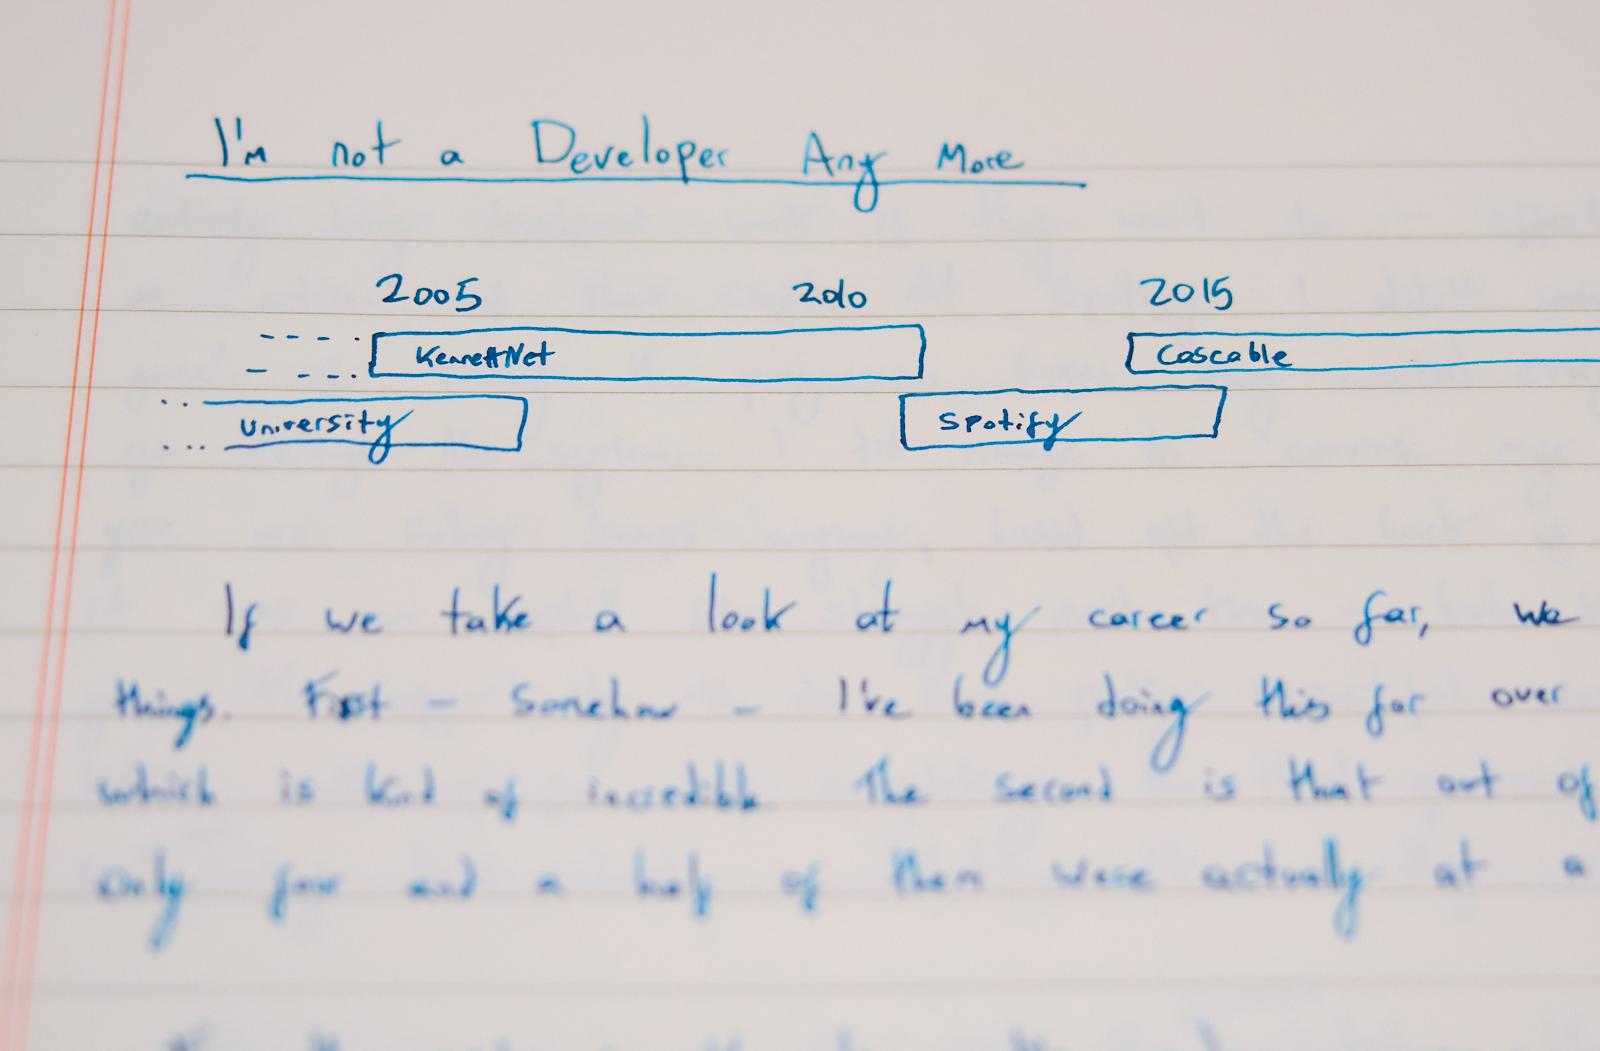 I'm not a Developer Any More
2005 2010 2015
KennettNet Cascable
University Spotify
If we take a look at my career so far, we
things. First - Somehow - I've been doing this for over
which is kind of incredible. The second is that out of
only four and a half of them were actually at a